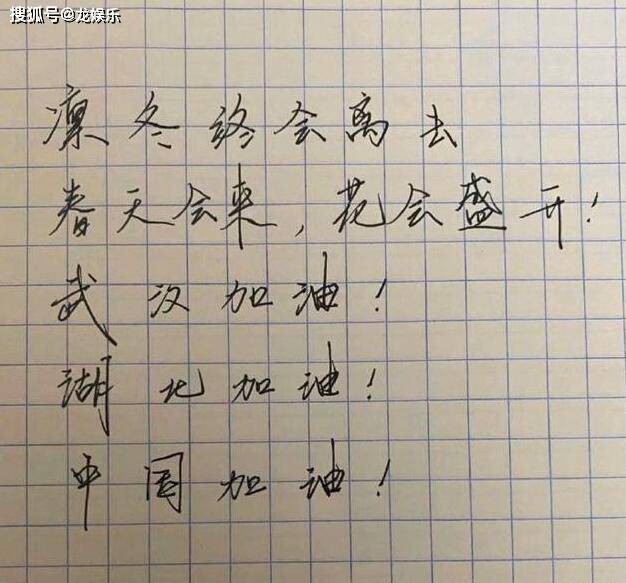 搜狐号@龙娱乐
凛冬终会离去
春天会来，花会盛开！
武汉加油！
湖北加油！
中国加油！